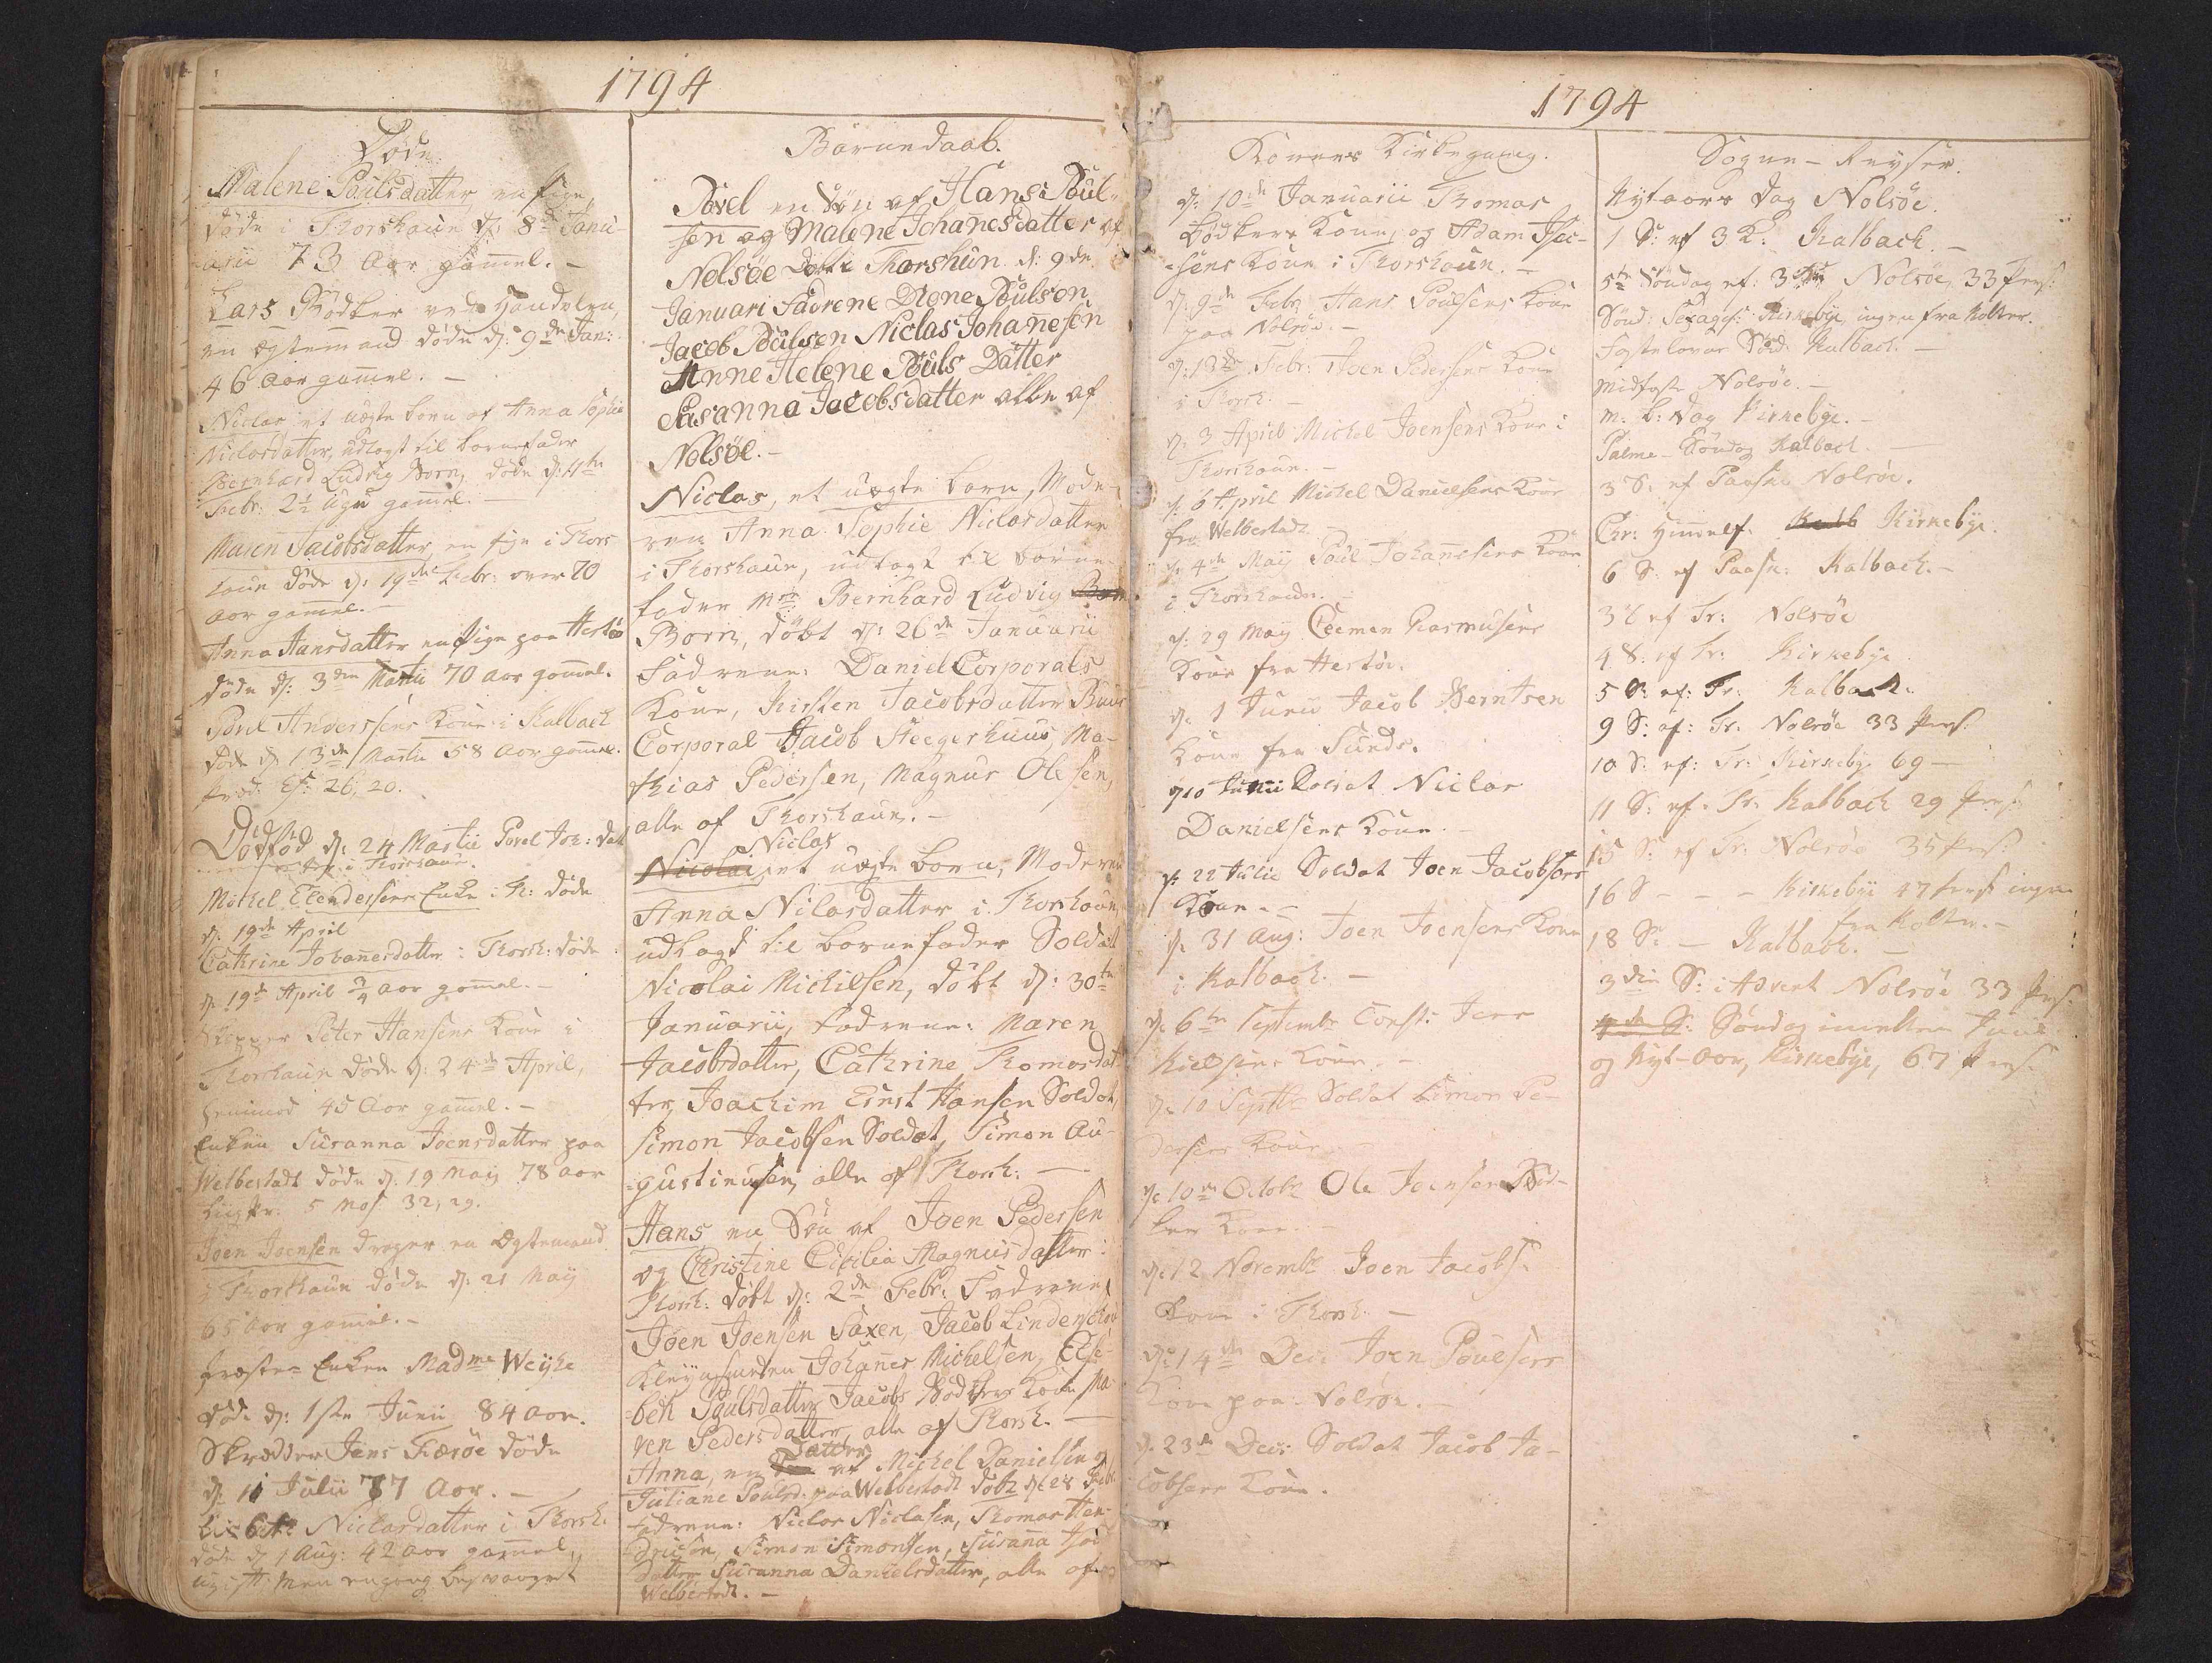 1794
Døde.
Malene Paulsdatter en Pige,
døde i Thorshaun d: 8de Janu-
arii 73 Aar gammel. -
Lars Bødker ved Handelen,
en Ægtemand døde d: 9de Jan:
46 Aar gammel. -
Niclas et uægte barn af Anna Sophie
Niclasdatter, udlagt til barnefader
Bernhard Ludvig Born, døde d: 11te
Febr: 2½ Uge gammel. -
Maren Jacobsdatter en Pige i Thors
haun døde d: 19de Febr: over 70
Aar gammel. -
Anna Hansdatter en Pige paa Hestøe
døde d: 3die Martii 70 Aar gammel.
Povl Anderssens Kone i Kalbach
døde d: 13de Martii 58 Aar gammel.
Præd: Es: 26, 20.
Dødfød d: 24 Martii Povel Joh: dat
i Thorshaun.
Michel Elendersens Enke i Th: døde
d: 19de April
Cathrine Johannesdatter i Thorsh: døde
d: 19de April ¾ Aar gammel. -
Skipper Peter Hansens Kone i
Thorshaun døde d: 24de April,
45 Aar gammel. -
Enken Susanna Joensdatter paa
Welbestadt døde d: 19 Maij 78 Aar
Ligpr: 5 Mos: 32, 29.
Joen Joensen Drejer en Ægtemand
i Thorshaun døde d: 21 Maij
65 Aar gammel. -
Præste-Enken Madme Weyhe
døde d: 1ste Junii 84 Aar.
Skrædder Jens Færøe døde
d: 11 Julii 77 Aar. -
Lisbeth Niclasdatter i Thorsh:
døde d: 1 Aug: 42 Aar gammel,
ugift men engang besvangret
Børnedaab.
Povel en Søn af Hans Poul-
sen og Malene Johanesdatter af
Nolsöe döbt i Thorshun d: 9de
Januari Fadrene Diene Poulsen
Jacob Poulsen Niclas Johannesen
Anne Helene Pouls Datter
Susanna Jacobsdatter alle af
Nolsöe. -
Niclas, et uægte barn, Mode-
ren Anna Sophie Niclasdatter
i Thorshaun, udlagt til barne-
fader Mr: Bernhard Ludvig Born
Born, döbt d: 26de Januarii
Fadrene: Daniel Corporals
Kone, Kirsten Jacobsdatter
Corporal Jacob Steegerhuus Ma-
thias Pedersen, Magnus Olesen,
alle af Thorshaun. -
Niclas
Nicolai, et uægte barn, Moderen
Anna Nilasdatter i Thorshaun
udlagt til barnefader Soldat
Nicolai Michilsen, döbt d: 30te
Januarii, Fadrene: Maren
Jacobsdatter, Cathrine Thomasdat
ter, Joachim Ernst Hansen Soldat,
Simon Jacobsen Soldat, Simon Au-
gustinusen, alle af Thorsh: -
Hans en Søn af Joen Pedersen
og Christine Cicilia Magnusdatter i
Thorsh: döbt d: 2de Febr: Fadrene
Joen Joensen Saxen, Jacob Lindenskou
Kleynsmeden Johannes Michelsen, Else-
beh Poulsdatter Jacobs Bødkers Kone Ma-
ren Pedersdatter, alle af Thorsh. -
Datter
Anna, en Søn af Michel Danielsen og
Juliane Poulsd: paa Welbestadt döbt d: 28 Febr
Fadrene: Niclas Niclasen, Thomas Hen-
drichsen, Simon Simonsen, Susanna
datter Susanna Danielsdatter, alle af
Welbestadt. -
1794
Koners Kirkegang.
d: 10de Januarii Thomas
Bødkers Kone, og Adam Isac-
sens Kone i Thorshaun. -
d: 9de Febr: Hans Poulsens Kone
paa Nolsöe. -
d: 13de Febr: Joen Pedersens Kone
i Thorsh. -
d: 3 April Michel Joensens Kone i
Thorshaun. -
d: 6 April Michel Danielsens Kone
fra Welbestadt -
d: 4de Maij Poul Johannesens Kone
i Thorshaun. -
d: 29 Maij Clemen Rasmusens
Kone fra Hestöe.
d: 1 Junii Jacob Berntsen
Kone fra Sund.
d: 10 Junii Soldat Niclas
Danielsens Kone. -
d: 22 Julii Soldat Joen Jacobsens
Kone. -
d: 31 Aug: Joen Joensens Kone
i Kalbach. -
d: 6te Septembr Const: Jens
Kielsens Kone. -
d: 10 Septbr Soldat Simon Pe-
dersens Kone
d: 10de Octobr Ole Joensen Bød-
ker Kone. -
d: 12 Novembr Joen Jacobs:
Kone i Thorsh. -
d: 14de Decr: Joen Poulsens
Kone paa Nolsöe. -
d: 23de Decr: Soldat Jacob Ja-
cobsens Kone.
Sogne-Reyser.
Nytaars Dag Nolsöe.
1 S: ef 3 K: Kalbach. -
5te Søndag ef: 3 K: Nolsöe, 33 Pers:
Sönd: Sexages: Kirkebye, ingen fra Kolter.
Fastelavns Sönd: Kalbach. -
Midfaste Nolsöe. -
M: B: Dag Kirkebye. -
Palme-Søndag Kalbach. -
3 S: ef Paaske Nolsöe.
Chr: Himmelf: Kalb Kirkebye.
6 S: ef Paask: Kalbach. -
3 S: ef Tr: Nolsöe
4 S: ef Tr: Kirkebye
5 S: ef: Tr: Kalbach.
9 S: ef: Tr: Nolsöe 33 Pers:
10 S: ef: Tr: Kirkebye 69 -
11 S: ef: Tr: Kalbach 29 Pers:
15 S: ef Tr: Nolsöe 35 Pers:
16 S - - - Kirkebye 47 Pers: ingen
fra Kolter. -
18 S - Kalbach. -
3die S: i Advent Nolsöe 33 Pers:
4de S: Søndag imellem Juul
og Nyt-Aar, Kirkebye, 67 Pers: